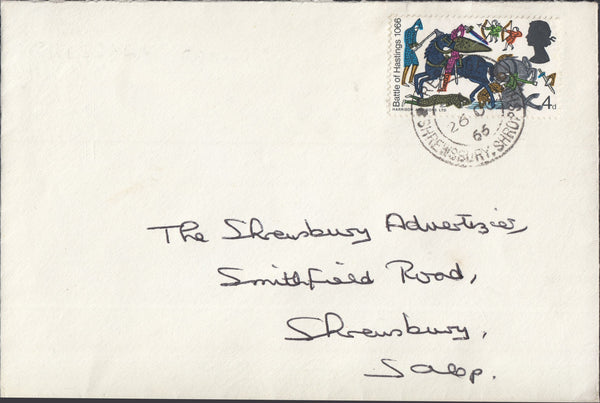 Battle of Hastings 1066
4d
26
66
SHREWSBURY, SHROPS
The Shrewsbury Advertizer,
Smithfield Road,
Shrewsbury,
Salop.